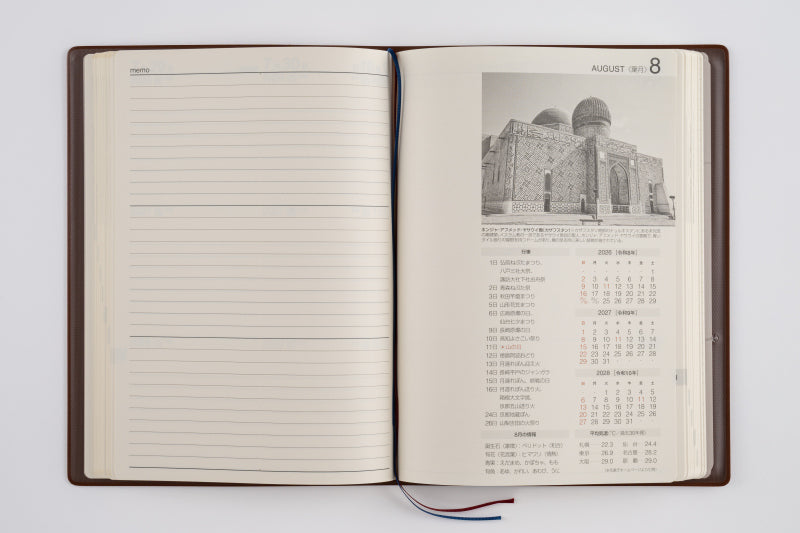 memo
AUGUST〈葉月〉8
ホンジャ・アフメッド・ヤサウイ廟(カザフスタン)
行事
1日 弘前ねぷたまつり、
八戸三社大祭、
諏訪大社下社お舟祭
2日 青森ねぶた祭
3日 秋田竿燈まつり
5日 山形花笠まつり
6日 広島原爆の日、
仙台七夕まつり
9日 長崎原爆の日
10日 高知よさこい祭り
11日 ●山の日
12日 徳島阿波おどり
13日 月遅れぼん迎え火
14日 長崎平戸のジャンガラ
15日 月遅れぼん、終戦の日
16日 月遅れぼん送り火、
箱根大文字焼、
京都五山送り火
24日 京都地蔵ぼん
26日 山梨吉田の火祭り
8月の情報
誕生石(宝石):ペリドット(和合)
旬花(花言葉):ヒマワリ(情熱)
青果:えだまめ、かぼちゃ、もも
旬魚:あゆ、かれい、あわび、うに
2026 [令和8年]
日 月 火 水 木 金 土
1
2 3 4 5 6 7 8
9 10 11 12 13 14 15
16 17 18 19 20 21 22
23/30 24/31 25 26 27 28 29
2027 [令和9年]
日 月 火 水 木 金 土
1 2 3 4 5 6 7
8 9 10 11 12 13 14
15 16 17 18 19 20 21
22 23 24 25 26 27 28
29 30 31
2028 [令和10年]
日 月 火 水 木 金 土
1 2 3 4 5
6 7 8 9 10 11 12
13 14 15 16 17 18 19
20 21 22 23 24 25 26
27 28 29 30 31
平均気温(℃/過去30年間)
札幌…22.3 仙台…24.4
東京…26.9 名古屋…28.2
大阪…29.0 那覇…29.0
8